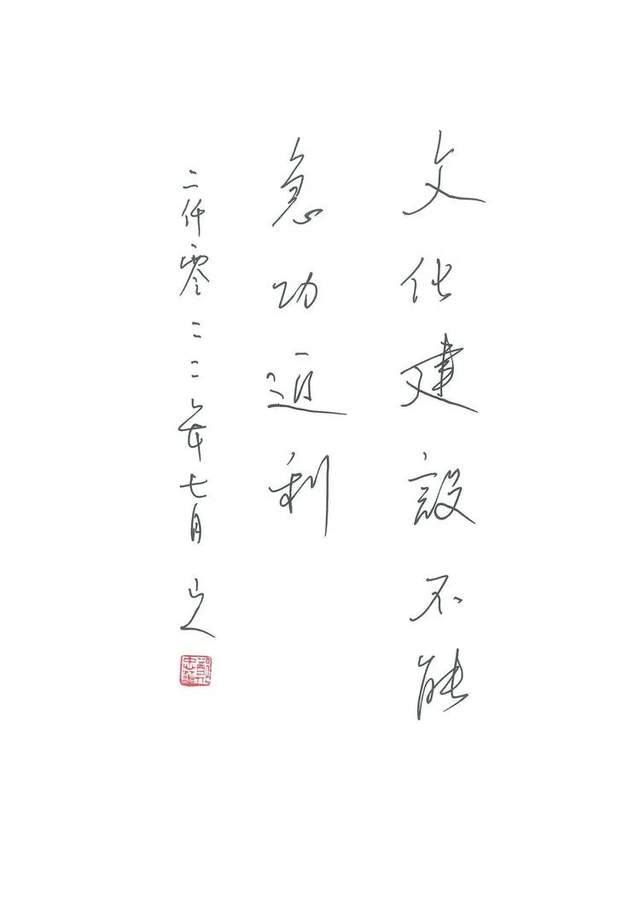 文化建設不能
急功近利
二仟零二二年七月